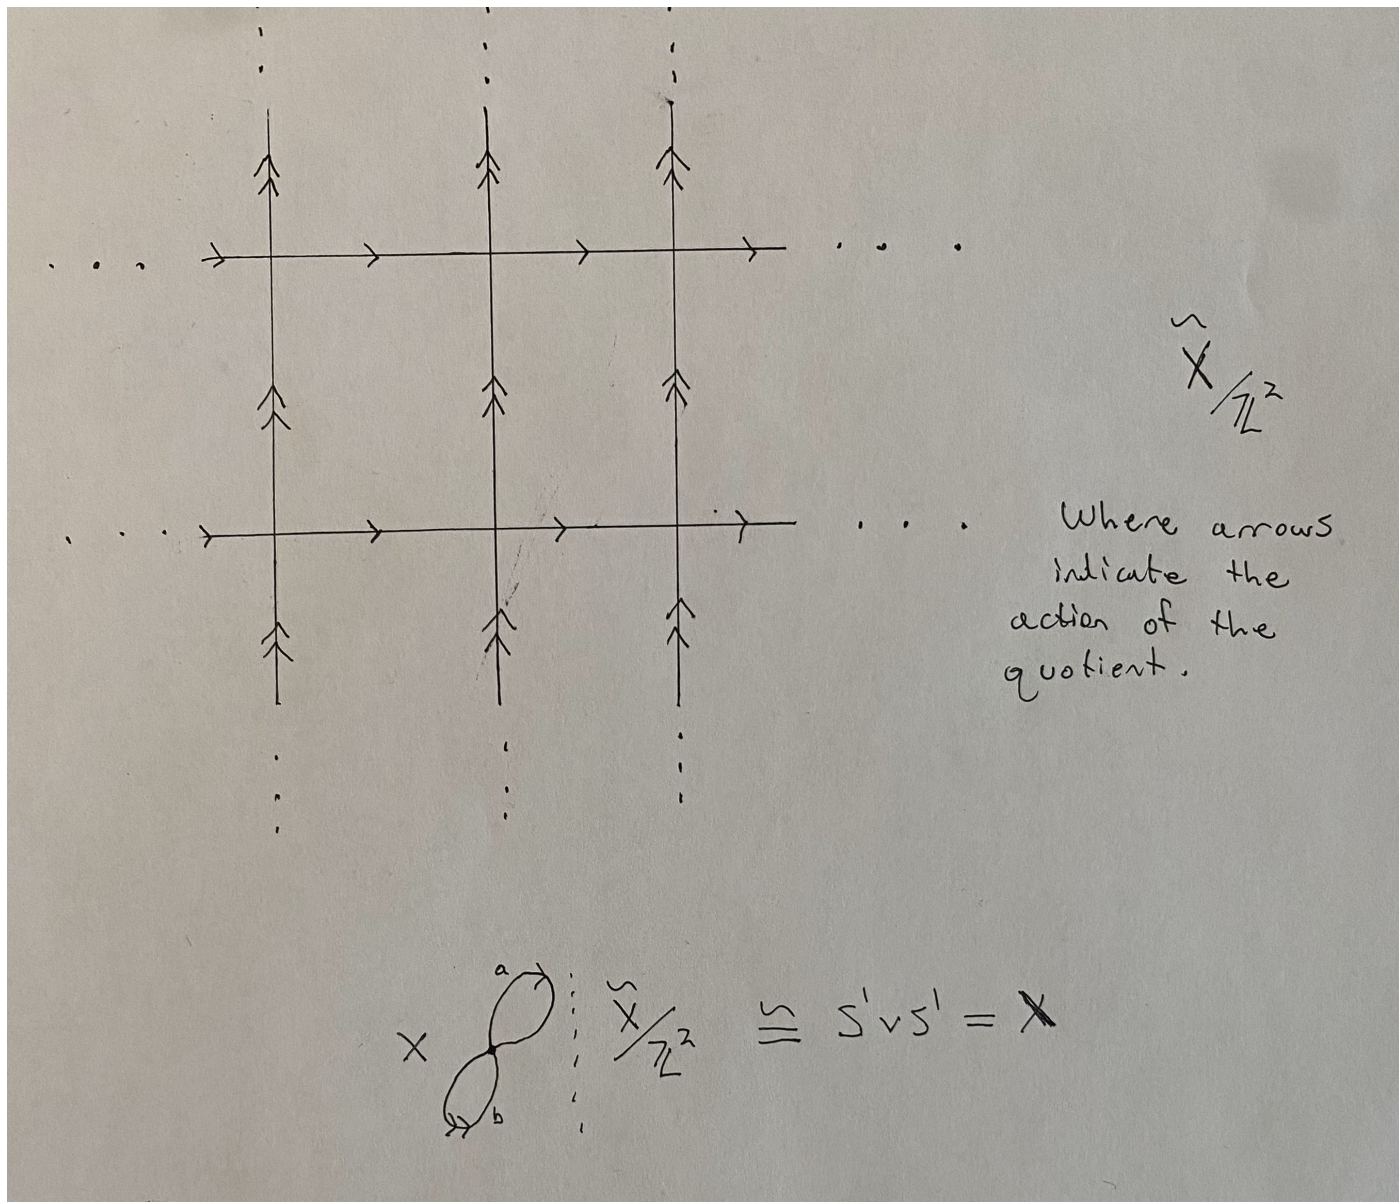 X̃/ℤ²
Where arrows
indicate the
action of the
quotient.
a
X
b
X̃/ℤ² ≅ S¹∨S¹ = X